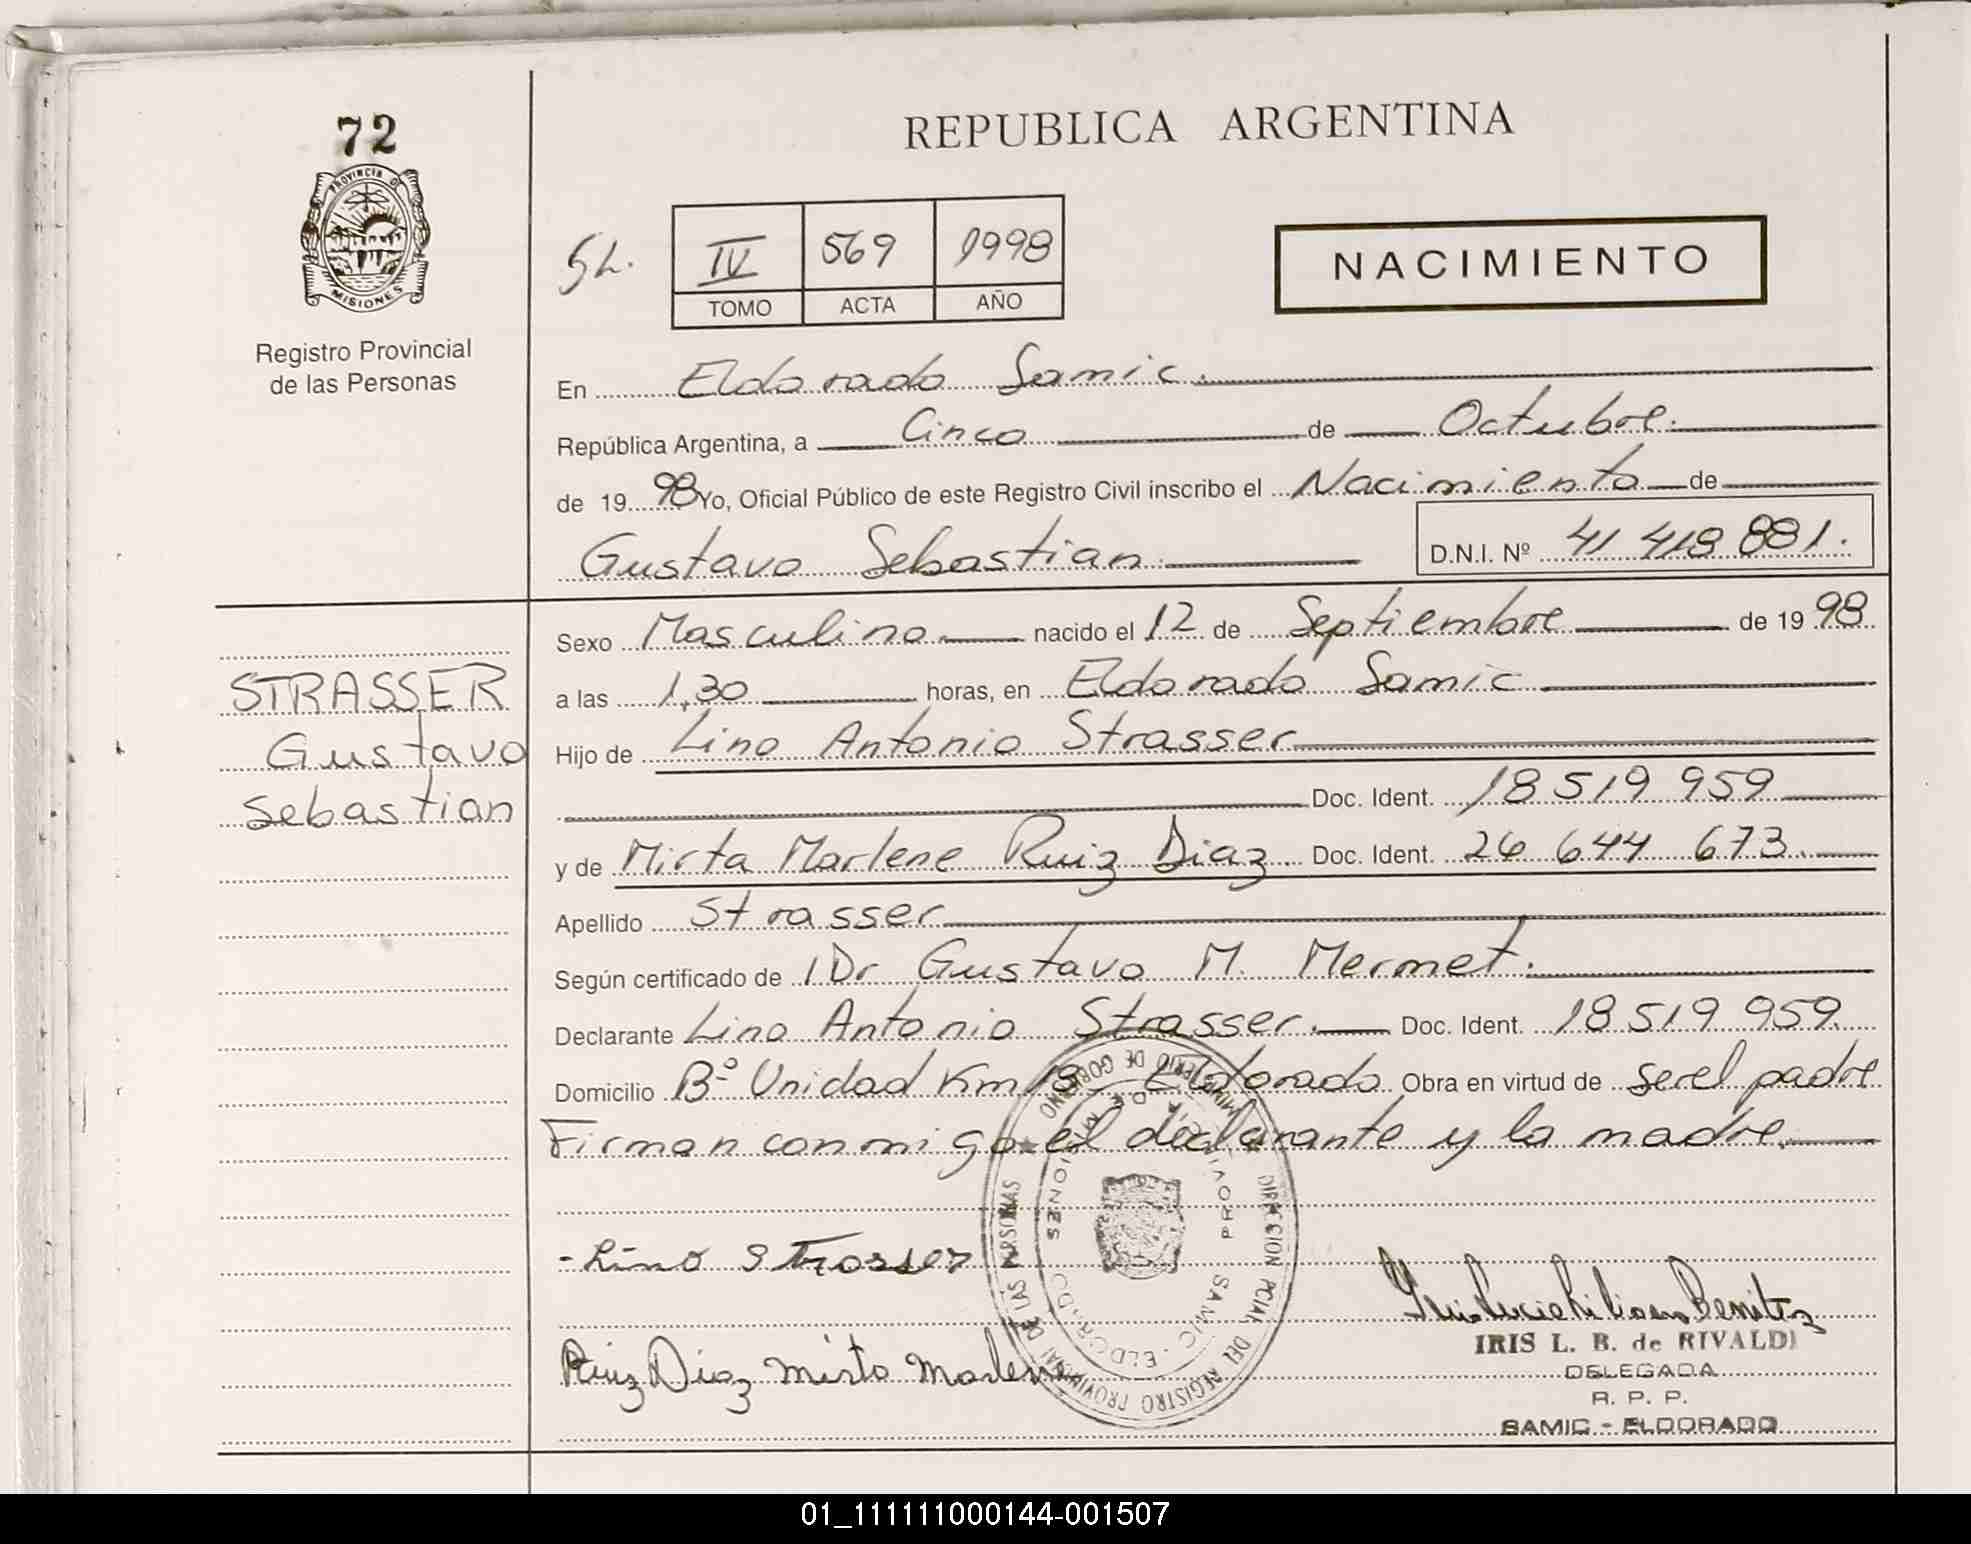 72
PROVINCIA DE
MISIONES
Registro Provincial
de las Personas
REPUBLICA ARGENTINA
IV 569 1998
TOMO ACTA AÑO
NACIMIENTO
En Eldorado Samic.
República Argentina, a Cinco de Octubre.
de 19 98 Yo, Oficial Público de este Registro Civil inscribo el Nacimiento de
Gustavo Sebastian D.N.I. Nº 41 418 881.
STRASSER
Gustavo
Sebastian
Sexo Masculino nacido el 12 de Septiembre de 19 98
a las 1,30 horas, en Eldorado Samic
Hijo de Lino Antonio Strasser
Doc. Ident. 18 519 959
y de Mirta Marlene Ruiz Diaz Doc. Ident. 26 644 673.
Apellido Strasser
Según certificado de Dr Gustavo M. Mermet.
Declarante Lino Antonio Strasser. Doc. Ident. 18 519 959.
Domicilio Bº Unidad Km 18 Eldorado Obra en virtud de ser el padre
Firman conmigo el declarante y la madre.
MINISTERIO DE GOBIERNO
DIRECCION PCIAL. DEL REGISTRO PROVINCIAL DE LAS PERSONAS
PROVINCIA DE MISIONES
SAMIC - ELDORADO
Lino Strasser
Ruiz Diaz Mirta Marlene
Benitez
IRIS L. B. de RIVALDI
DELEGADA
R. P. P.
SAMIC - ELDORADO
01_111111000144-001507